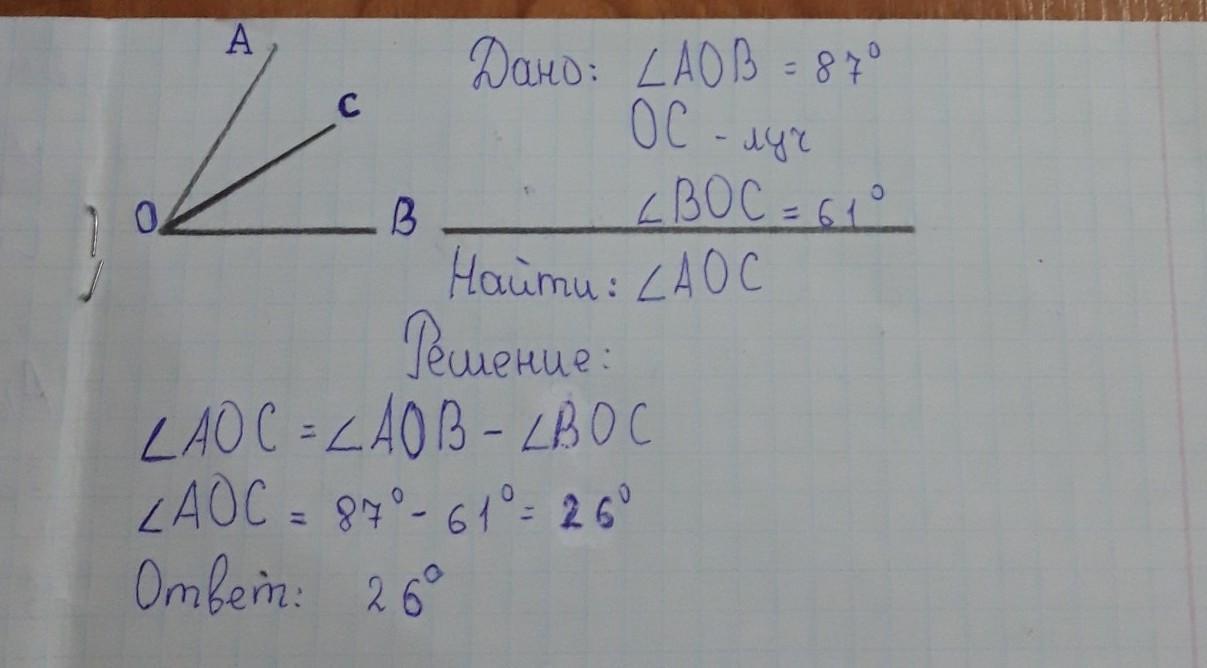 A
C
O
B
Дано: ∠AOB = 87°
OC - луч
∠BOC = 61°
Найти: ∠AOC
Решение:
∠AOC = ∠AOB - ∠BOC
∠AOC = 87° - 61° = 26°
Ответ: 26°